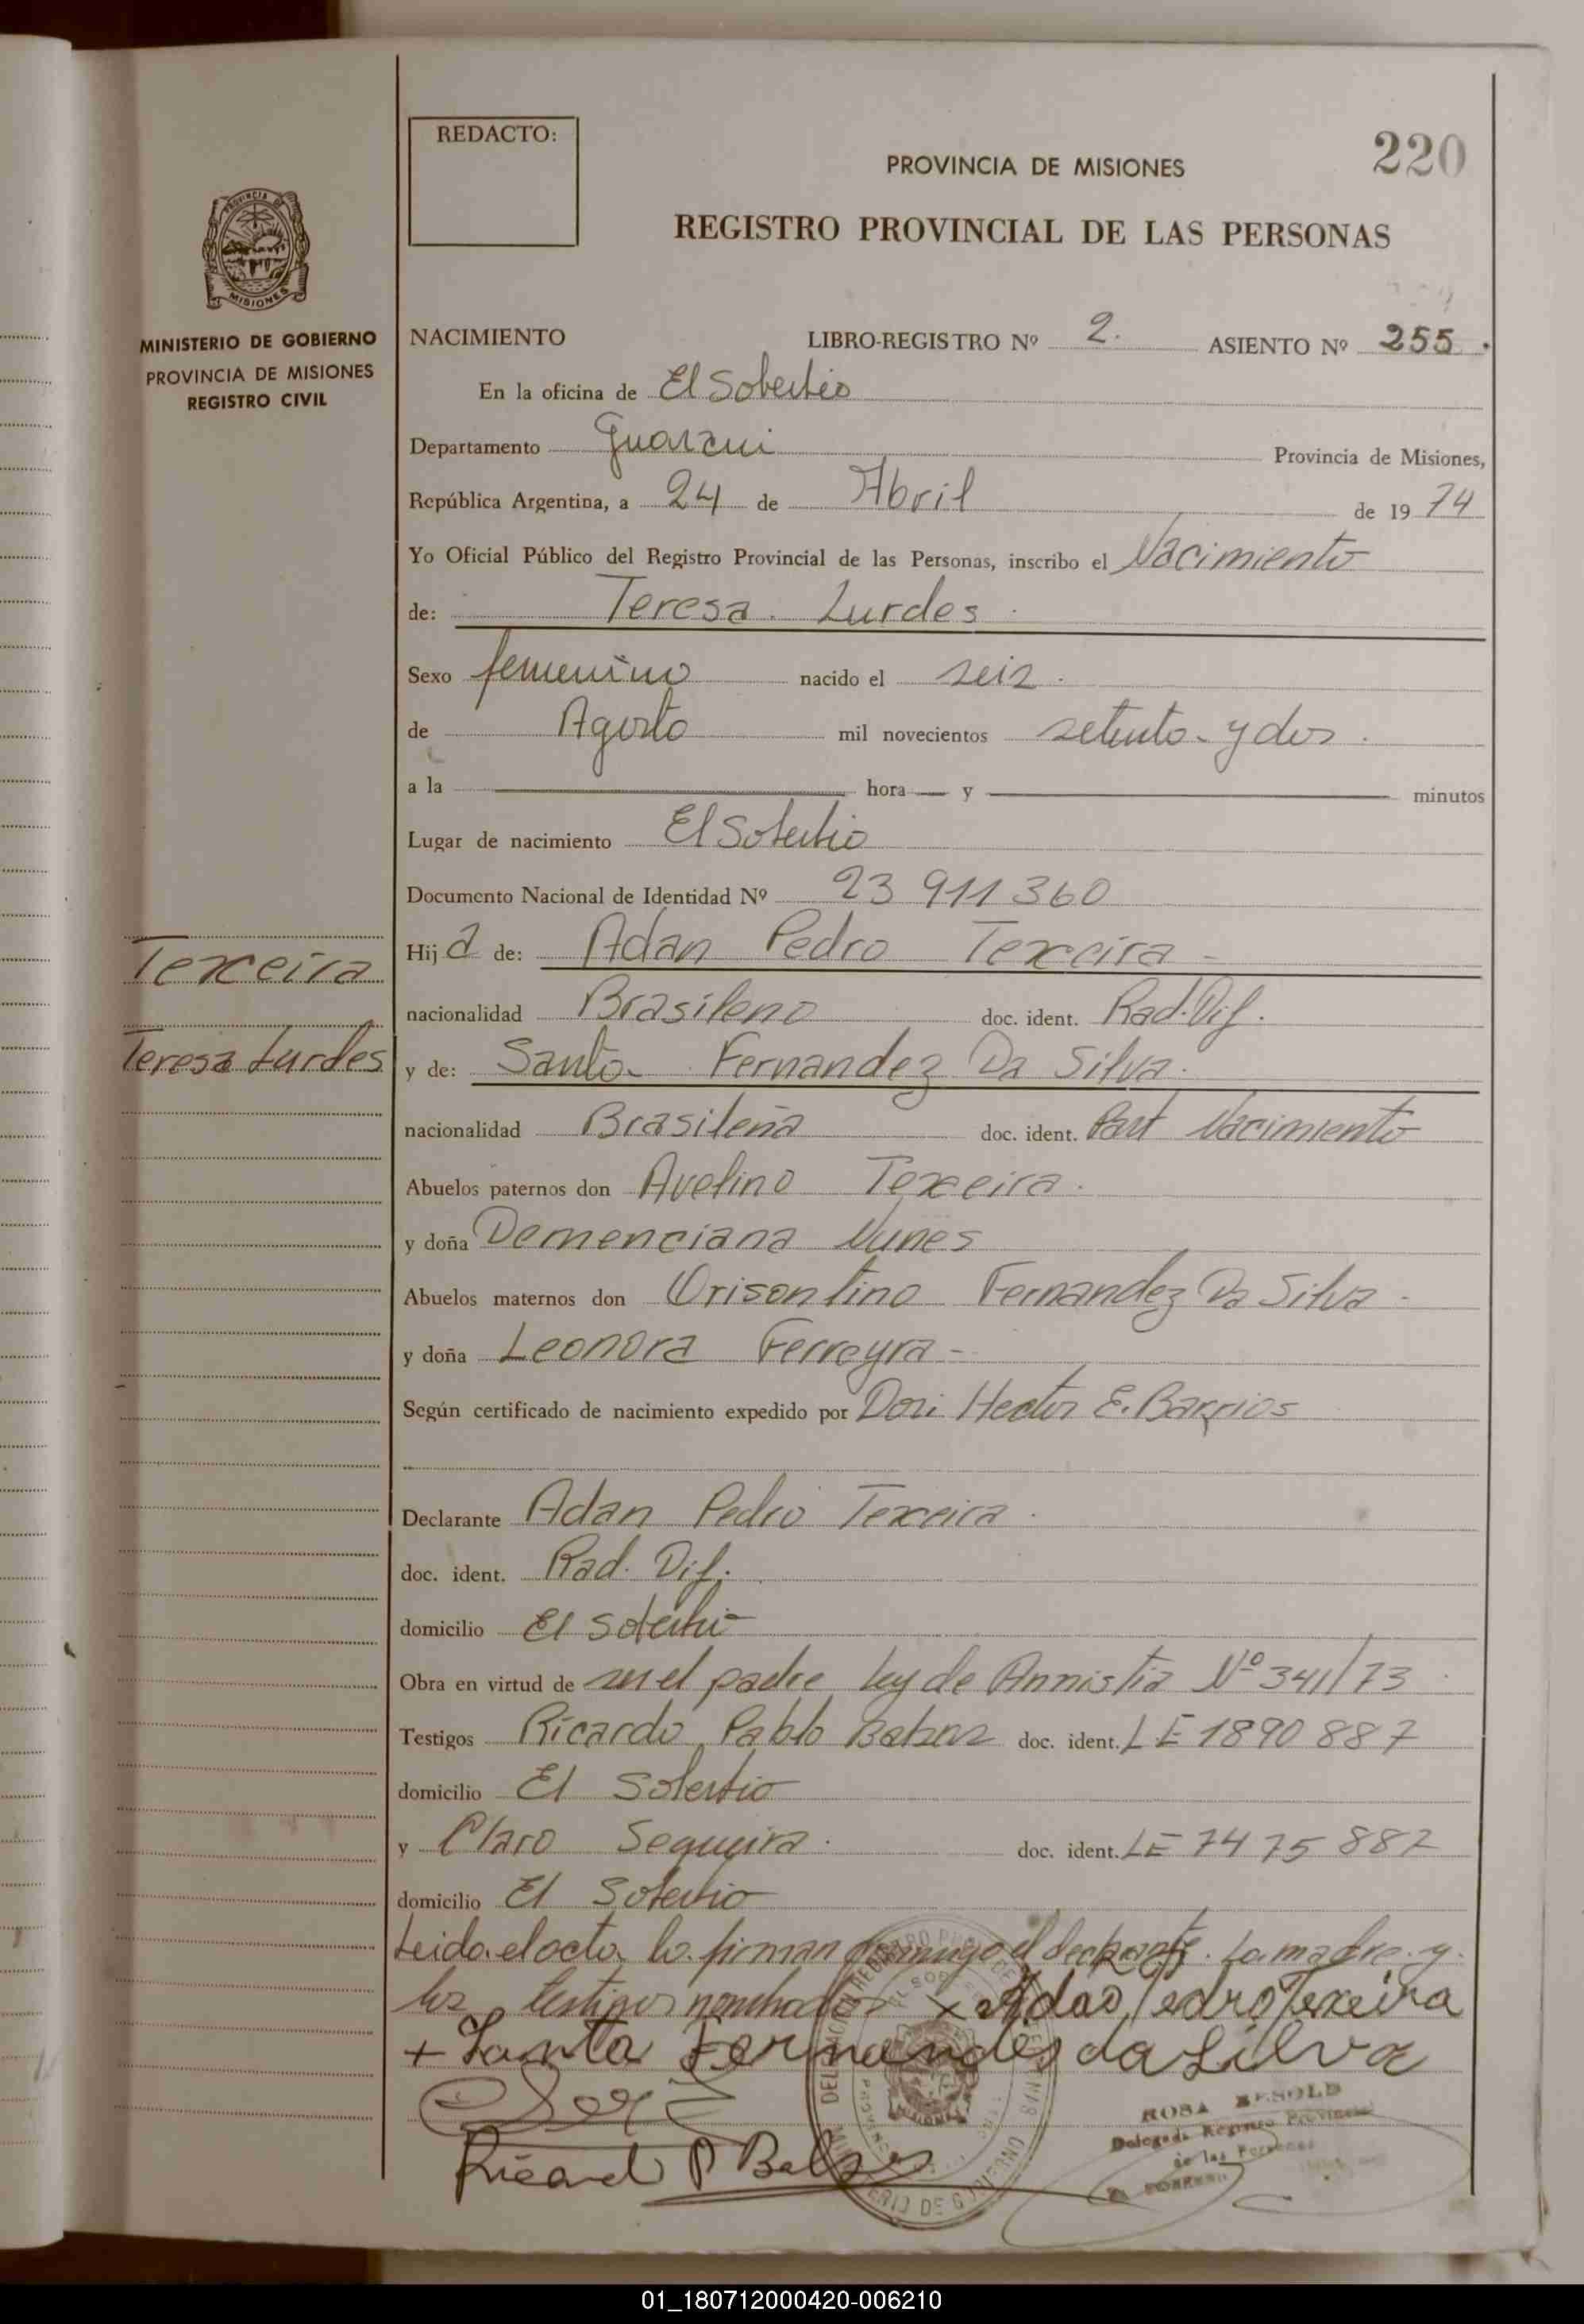 REDACTO:
220
PROVINCIA DE MISIONES
REGISTRO PROVINCIAL DE LAS PERSONAS
PROVINCIA DE
MISIONES
MINISTERIO DE GOBIERNO
PROVINCIA DE MISIONES
REGISTRO CIVIL
NACIMIENTO LIBRO-REGISTRO Nº 2. ASIENTO Nº 255.
En la oficina de El Soberbio
Departamento Guarani Provincia de Misiones,
República Argentina, a 24 de Abril de 1974
Yo Oficial Público del Registro Provincial de las Personas, inscribo el Nacimiento
de: Teresa Lurdes
Sexo femenino nacido el seis
de Agosto mil novecientos setenta y dos
a la hora y minutos
Lugar de nacimiento El Soberbio
Documento Nacional de Identidad Nº 23 911 360
Hija de: Adan Pedro Texeira
Texeira
nacionalidad Brasileno doc. ident. Rad. Dif.
Teresa Lurdes
y de: Santa Fernandez Da Silva
nacionalidad Brasileña doc. ident. Part Nacimiento
Abuelos paternos don Avelino Texeira
y doña Demenciana Nunes
Abuelos maternos don Orisontino Fernandez Da Silva
y doña Leonora Ferreyra
Según certificado de nacimiento expedido por Hector E. Barrios
Declarante Adan Pedro Texeira
doc. ident. Rad. Dif.
domicilio El Soberbio
Obra en virtud de ser el padre ley de Amnistia Nº 341/73
Testigos Ricardo Pablo doc. ident. LE 1890 887
domicilio El Soberbio
y Claro Sequeira doc. ident. LE 7475 887
domicilio El Soberbio
Leida el acta la firman conmigo el declarante. La madre y
los testigos nombrados x Adão Pedro Texeira
+ Santa Fernandes da Silva
ROSA
Delegada Registro Provincial
de las Personas
Ricardo P
01_180712000420-006210